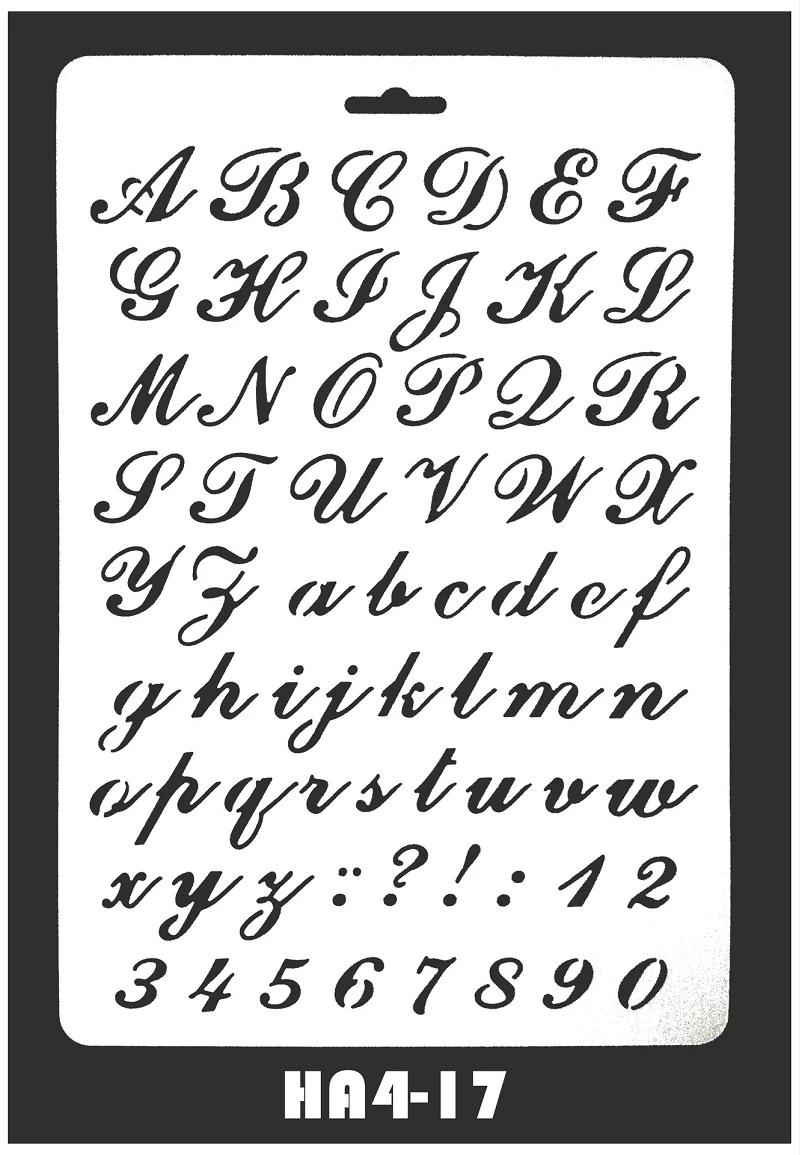 A B C D E F
G H I J K L
M N O P Q R
S T U V W X
Y Z a b c d e f
g h i j k l m n
o p q r s t u v w
x y z ?! : 1 2
3 4 5 6 7 8 9 0
HA4-17